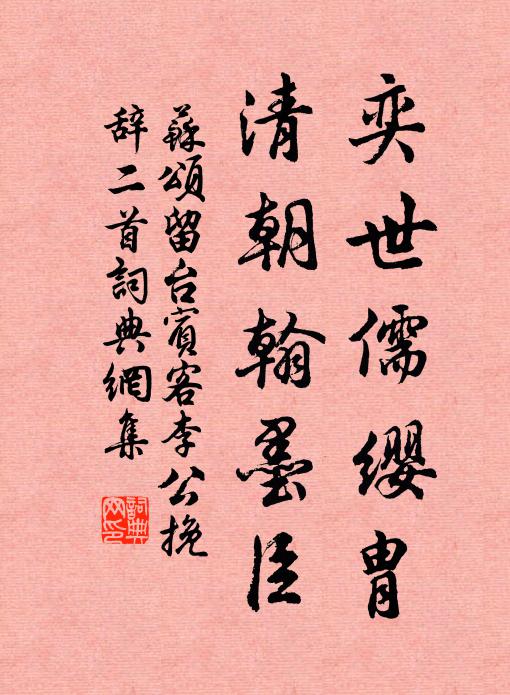 奕世儒缨胄
清朝翰墨臣
蘇頌留台賓客李公挽
辞二首詞典網集
詞典
网印